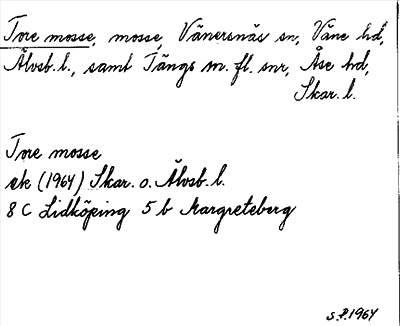 Tore mosse, mosse, Vänersnäs sn, Väne hd,
Älvsb. l., samt Tängs m. fl. snr, Åse hd,
Skar. l.
Tore mosse
ek (1964) Skar. o. Älvsb. l.
8 C Lidköping 5 b Margreteberg
S.P. 1964